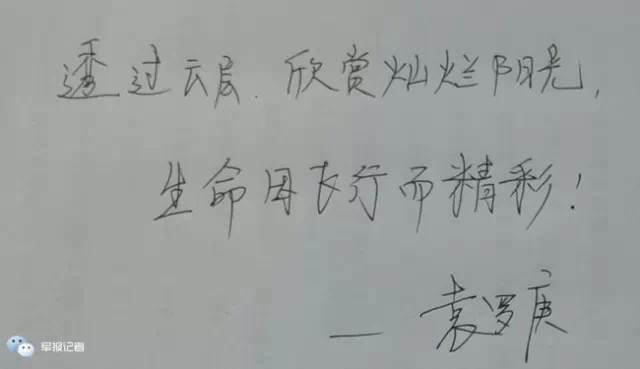 透过云层.欣赏灿烂阳光,
生命因飞行而精彩!
— 袁罗庚
军报记者